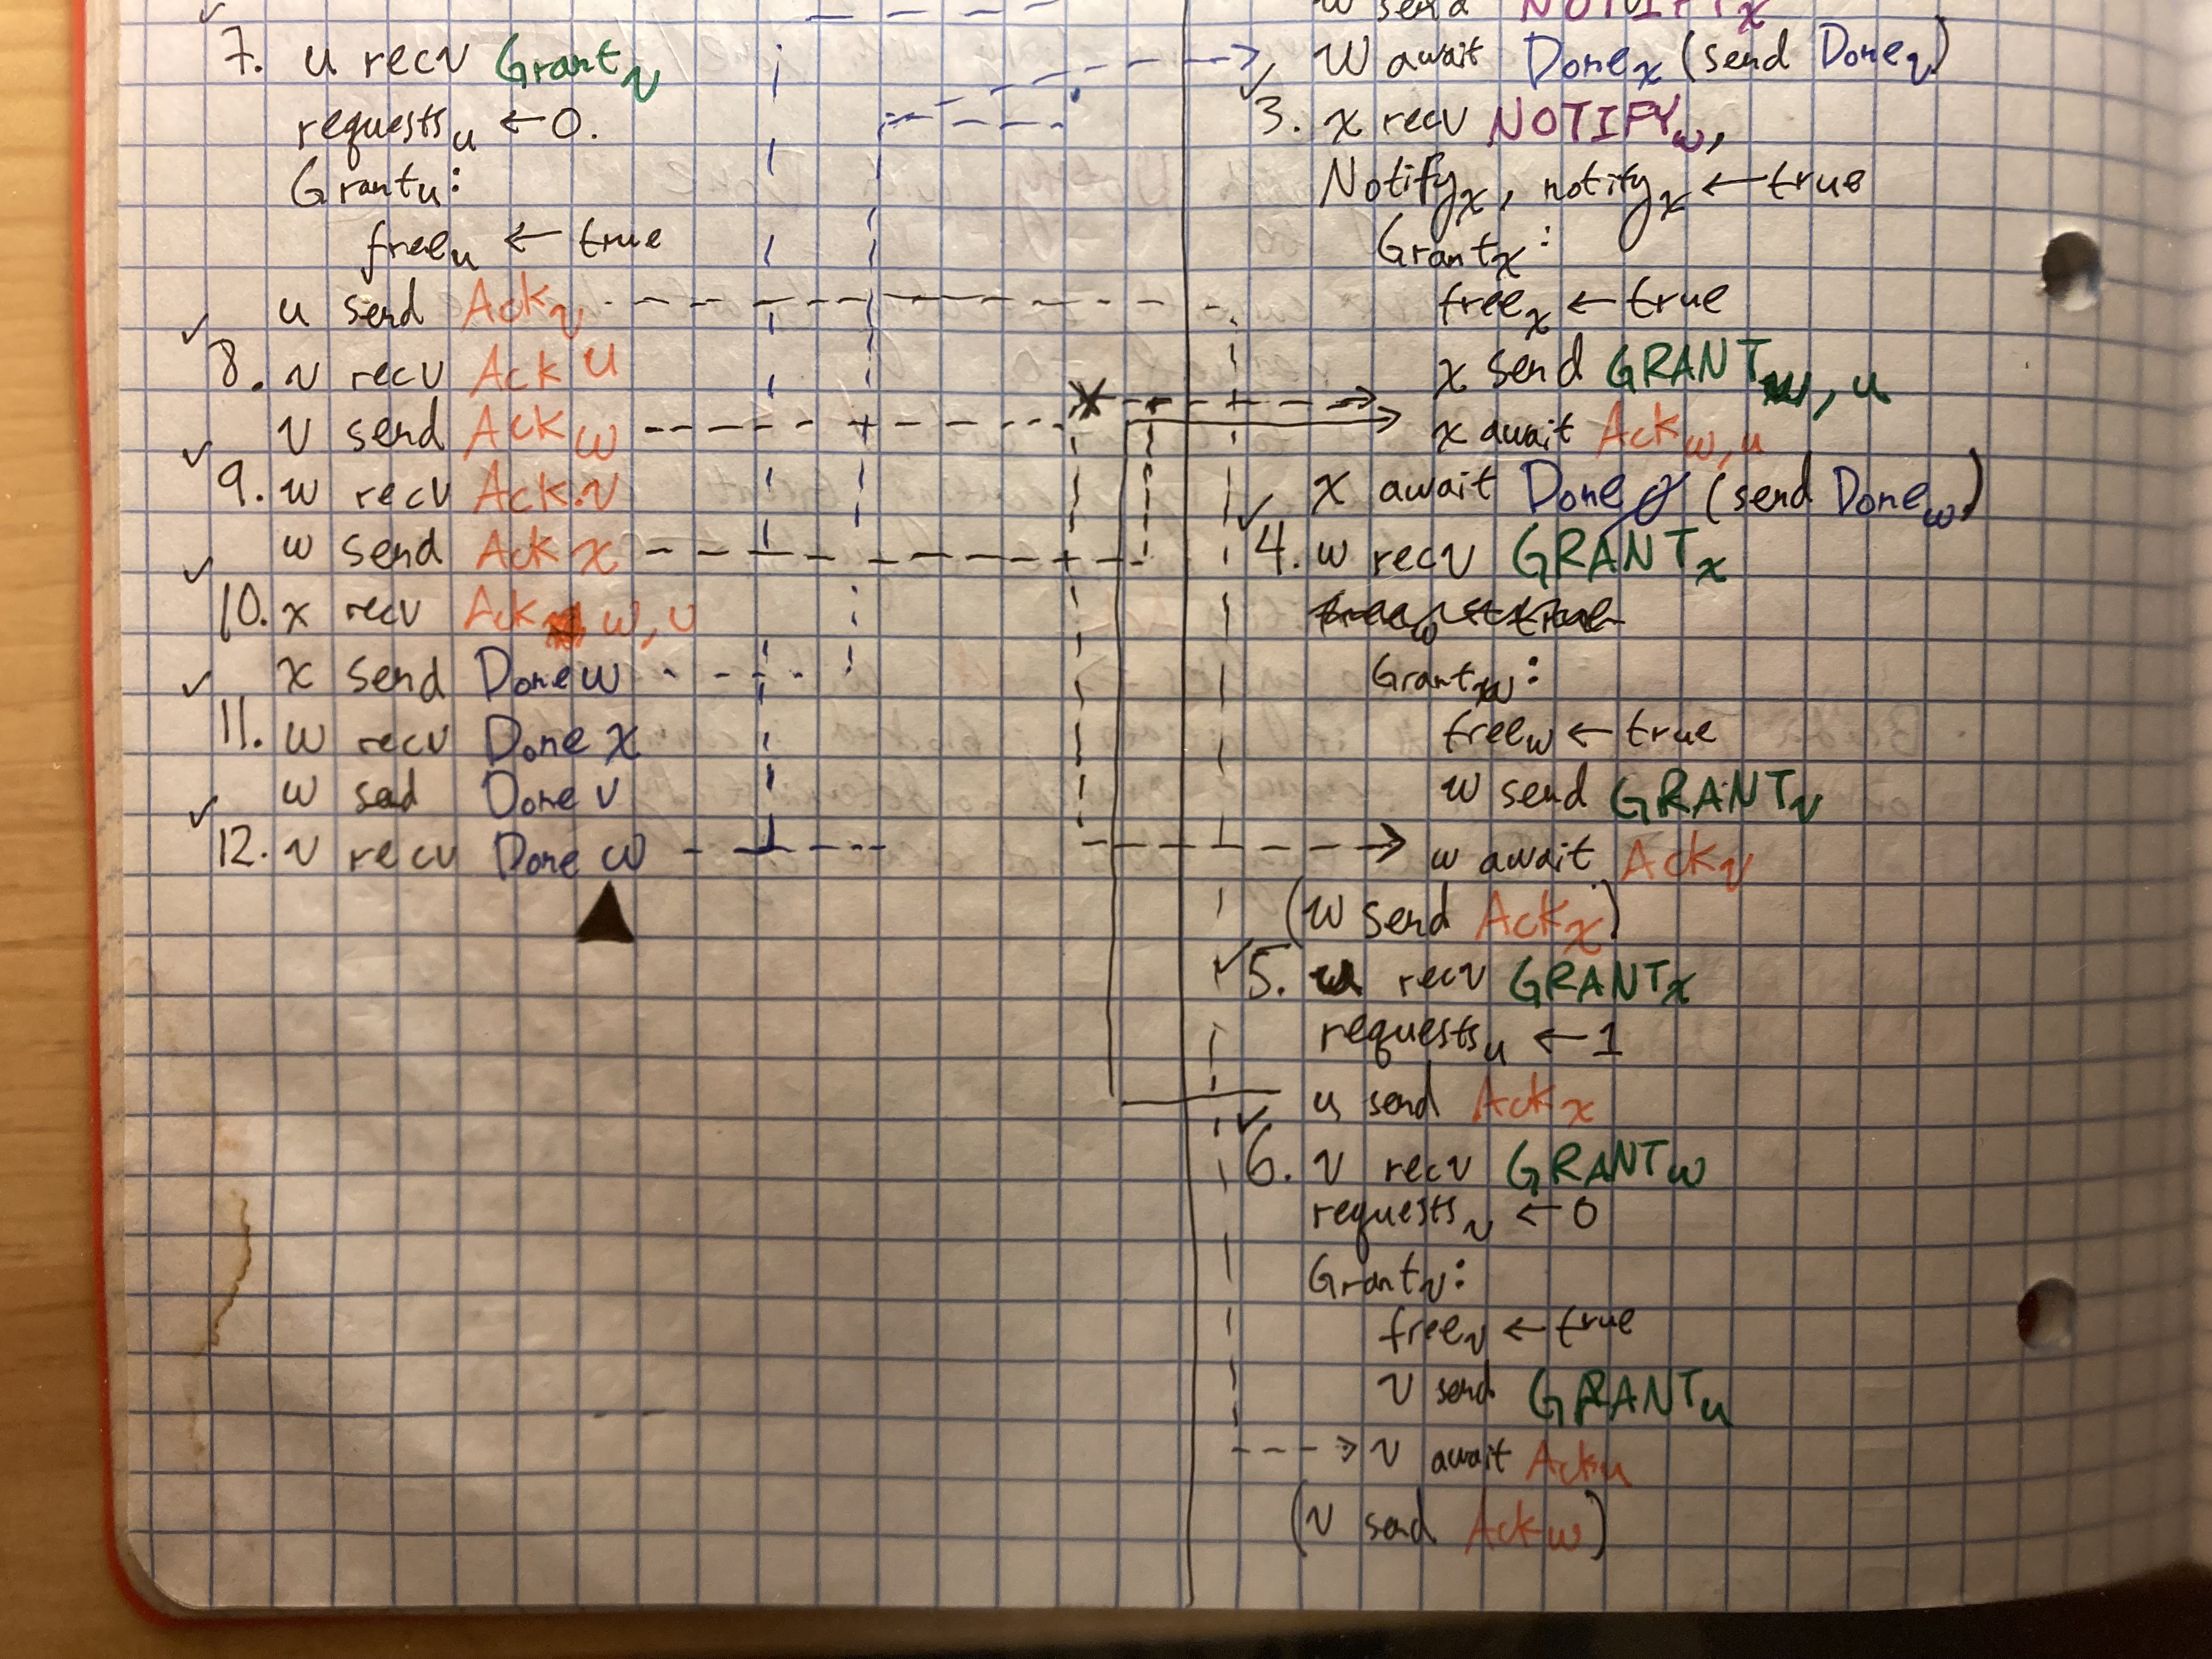 7. u recv Grant v
requests u ← 0.
Grant u:
free u ← true
u send Ack v
8. v recv Ack u
v send Ack w
9. w recv Ack v
w send Ack x
10. x recv Ack w, u
x send Done w
11. w recv Done x
w sed Done v
12. v recv Done w
w send NOTIFY x
w await Done x (send Done v)
3. x recv NOTIFY w,
Notify x, notify x ← true
Grant x:
free x ← true
x send GRANT w, u
x await Ack w, u
x await Done ∅ (send Done w)
4. w recv GRANT x
free w ← true
Grant w:
free w ← true
w send GRANT v
w await Ack v
(w send Ack x)
5. u recv GRANT x
requests u ← 1
u send Ack x
6. v recv GRANT w
requests v ← 0
Grant v:
free v ← true
v send GRANT u
v await Ack u
(v send Ack w)